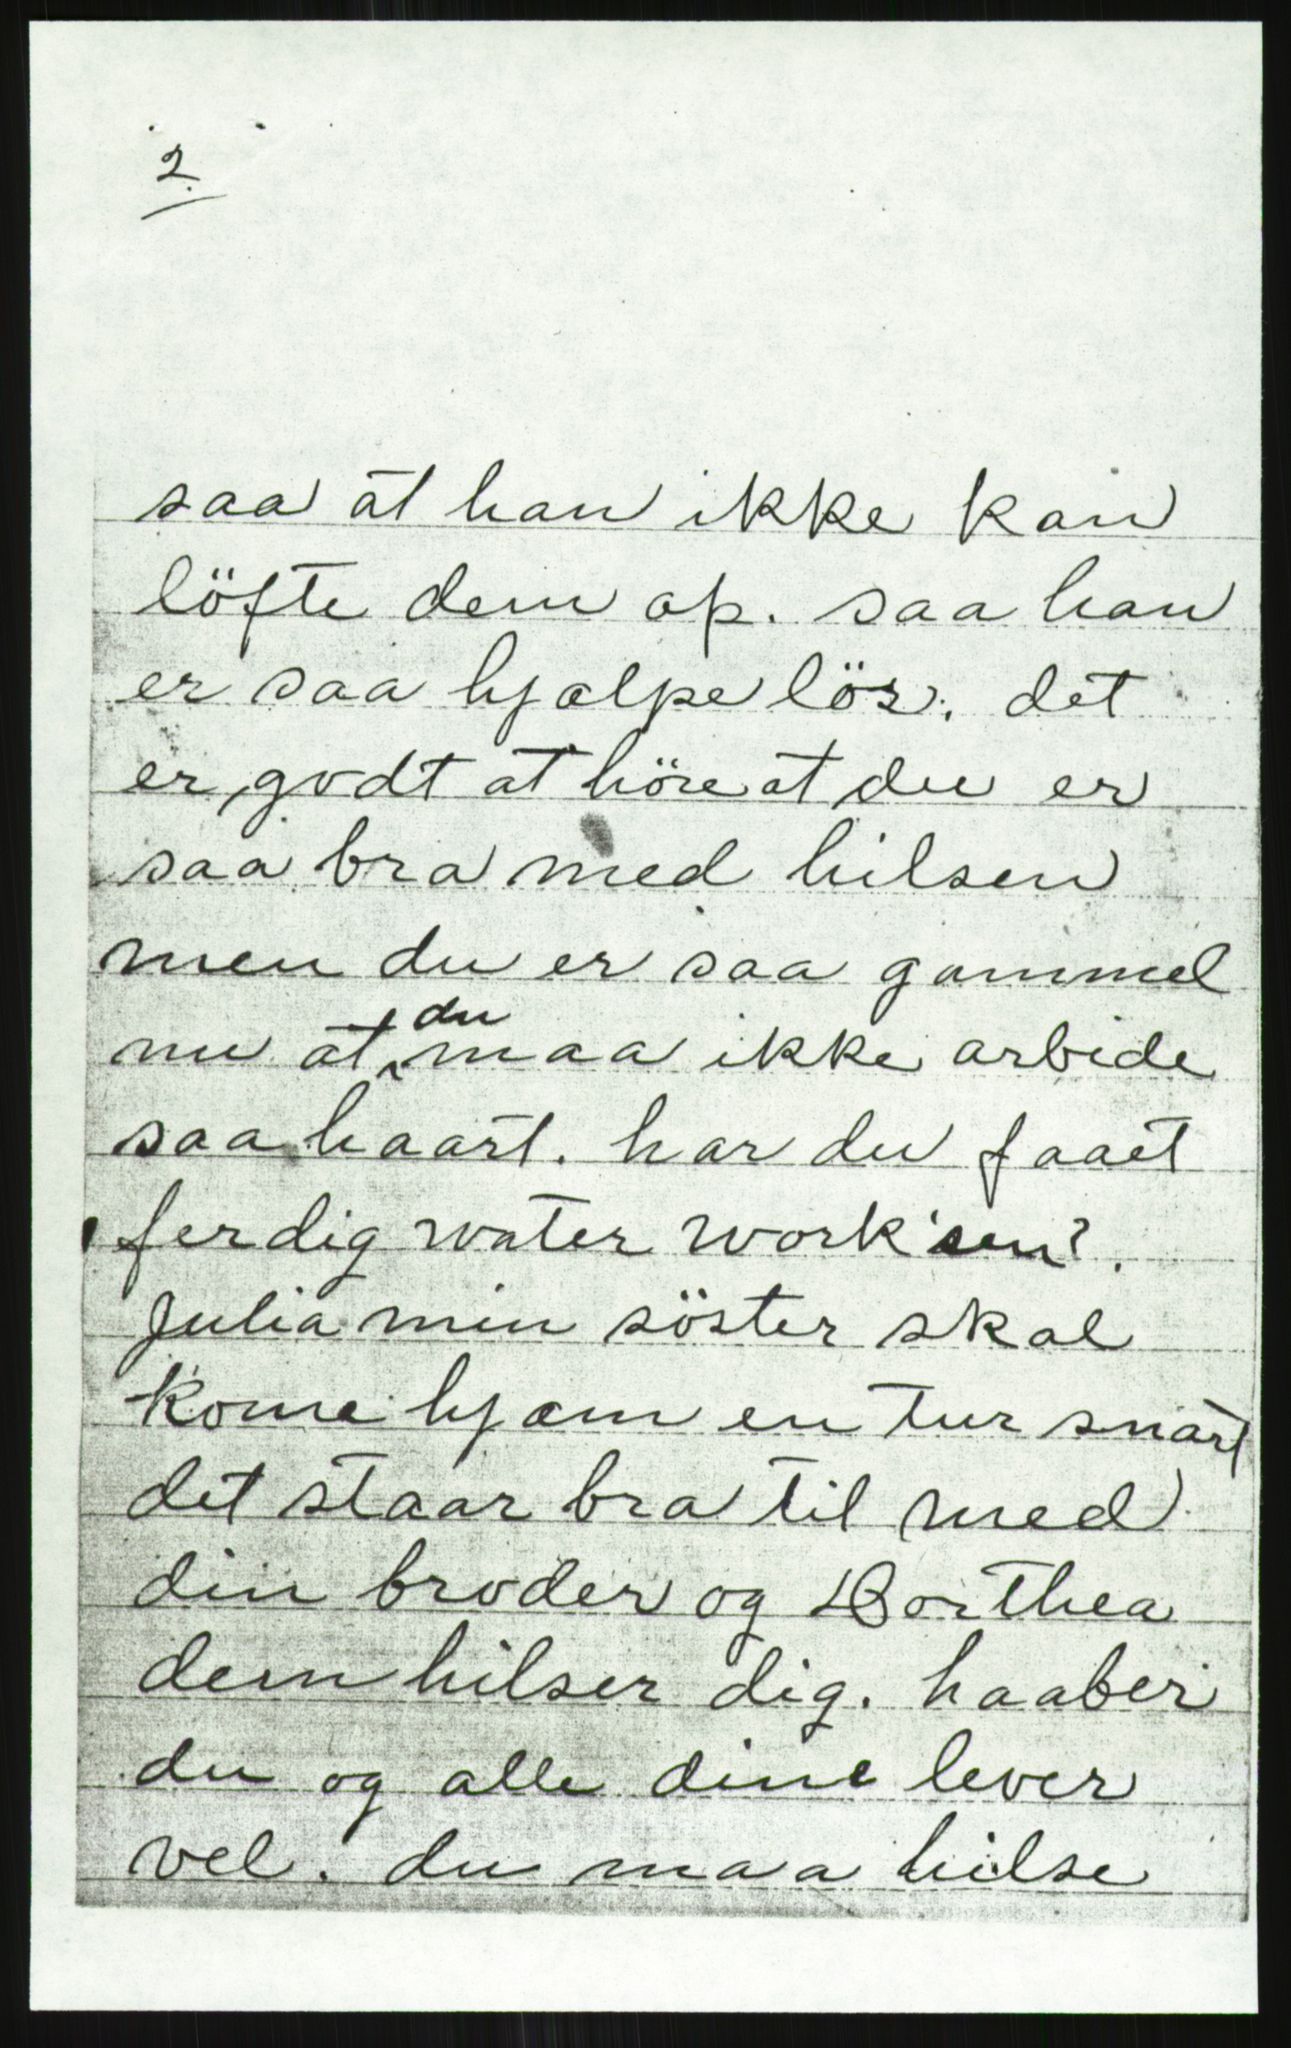 2.
saa at han ikke kan
löfte dem op. saa han
er saa hjælpelös. det
er godt at höre at du er
saa bra med hilsen
men du er saa gammel
nu at du maa ikke arbide
saa haart. har du faaet
ferdig water work'sen?.
Julia min söster skal
kome hjem en tur snart
det staar bra til med
din broder og Dorthea
dem hilser dig. haaber
du og alle dine lever
vel. du maa hilse